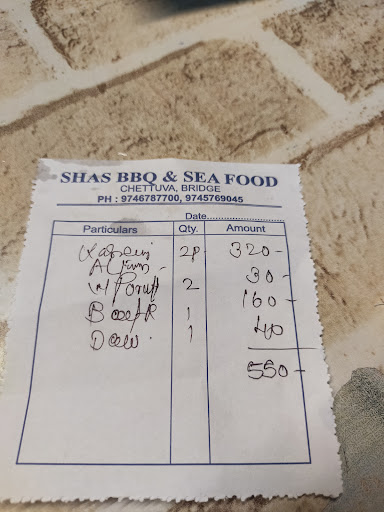 SHAS BBQ & SEA FOOD
CHETTUVA, BRIDGE
PH : 9746787700, 9745769045
Date
Particulars Qty. Amount
2P 320-
30-
2 160-
Beef R 1 40
1
550-